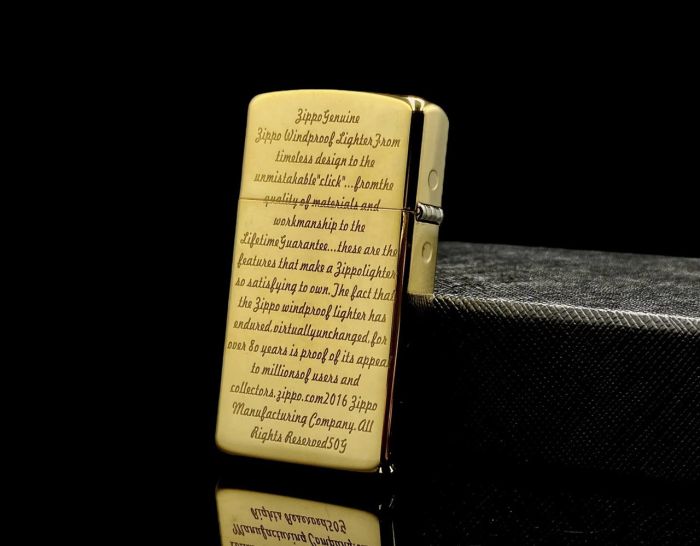 ZippoGenuine
Zippo Windproof LighterFrom
timeless design to the
unmistakable"click"...fromthe
quality of materials and
workmanship to the
LifetimeGuarantee...these are the
features that make a Zippolighter
so satisfying to own.The fact that
the Zippo windproof lighter has
endured,virtuallyunchanged,for
over 80 years is proof of its appeal
to millionsof users and
collectors.zippo.com2016 Zippo
Manufacturing Company.All
Rights Reserved50G